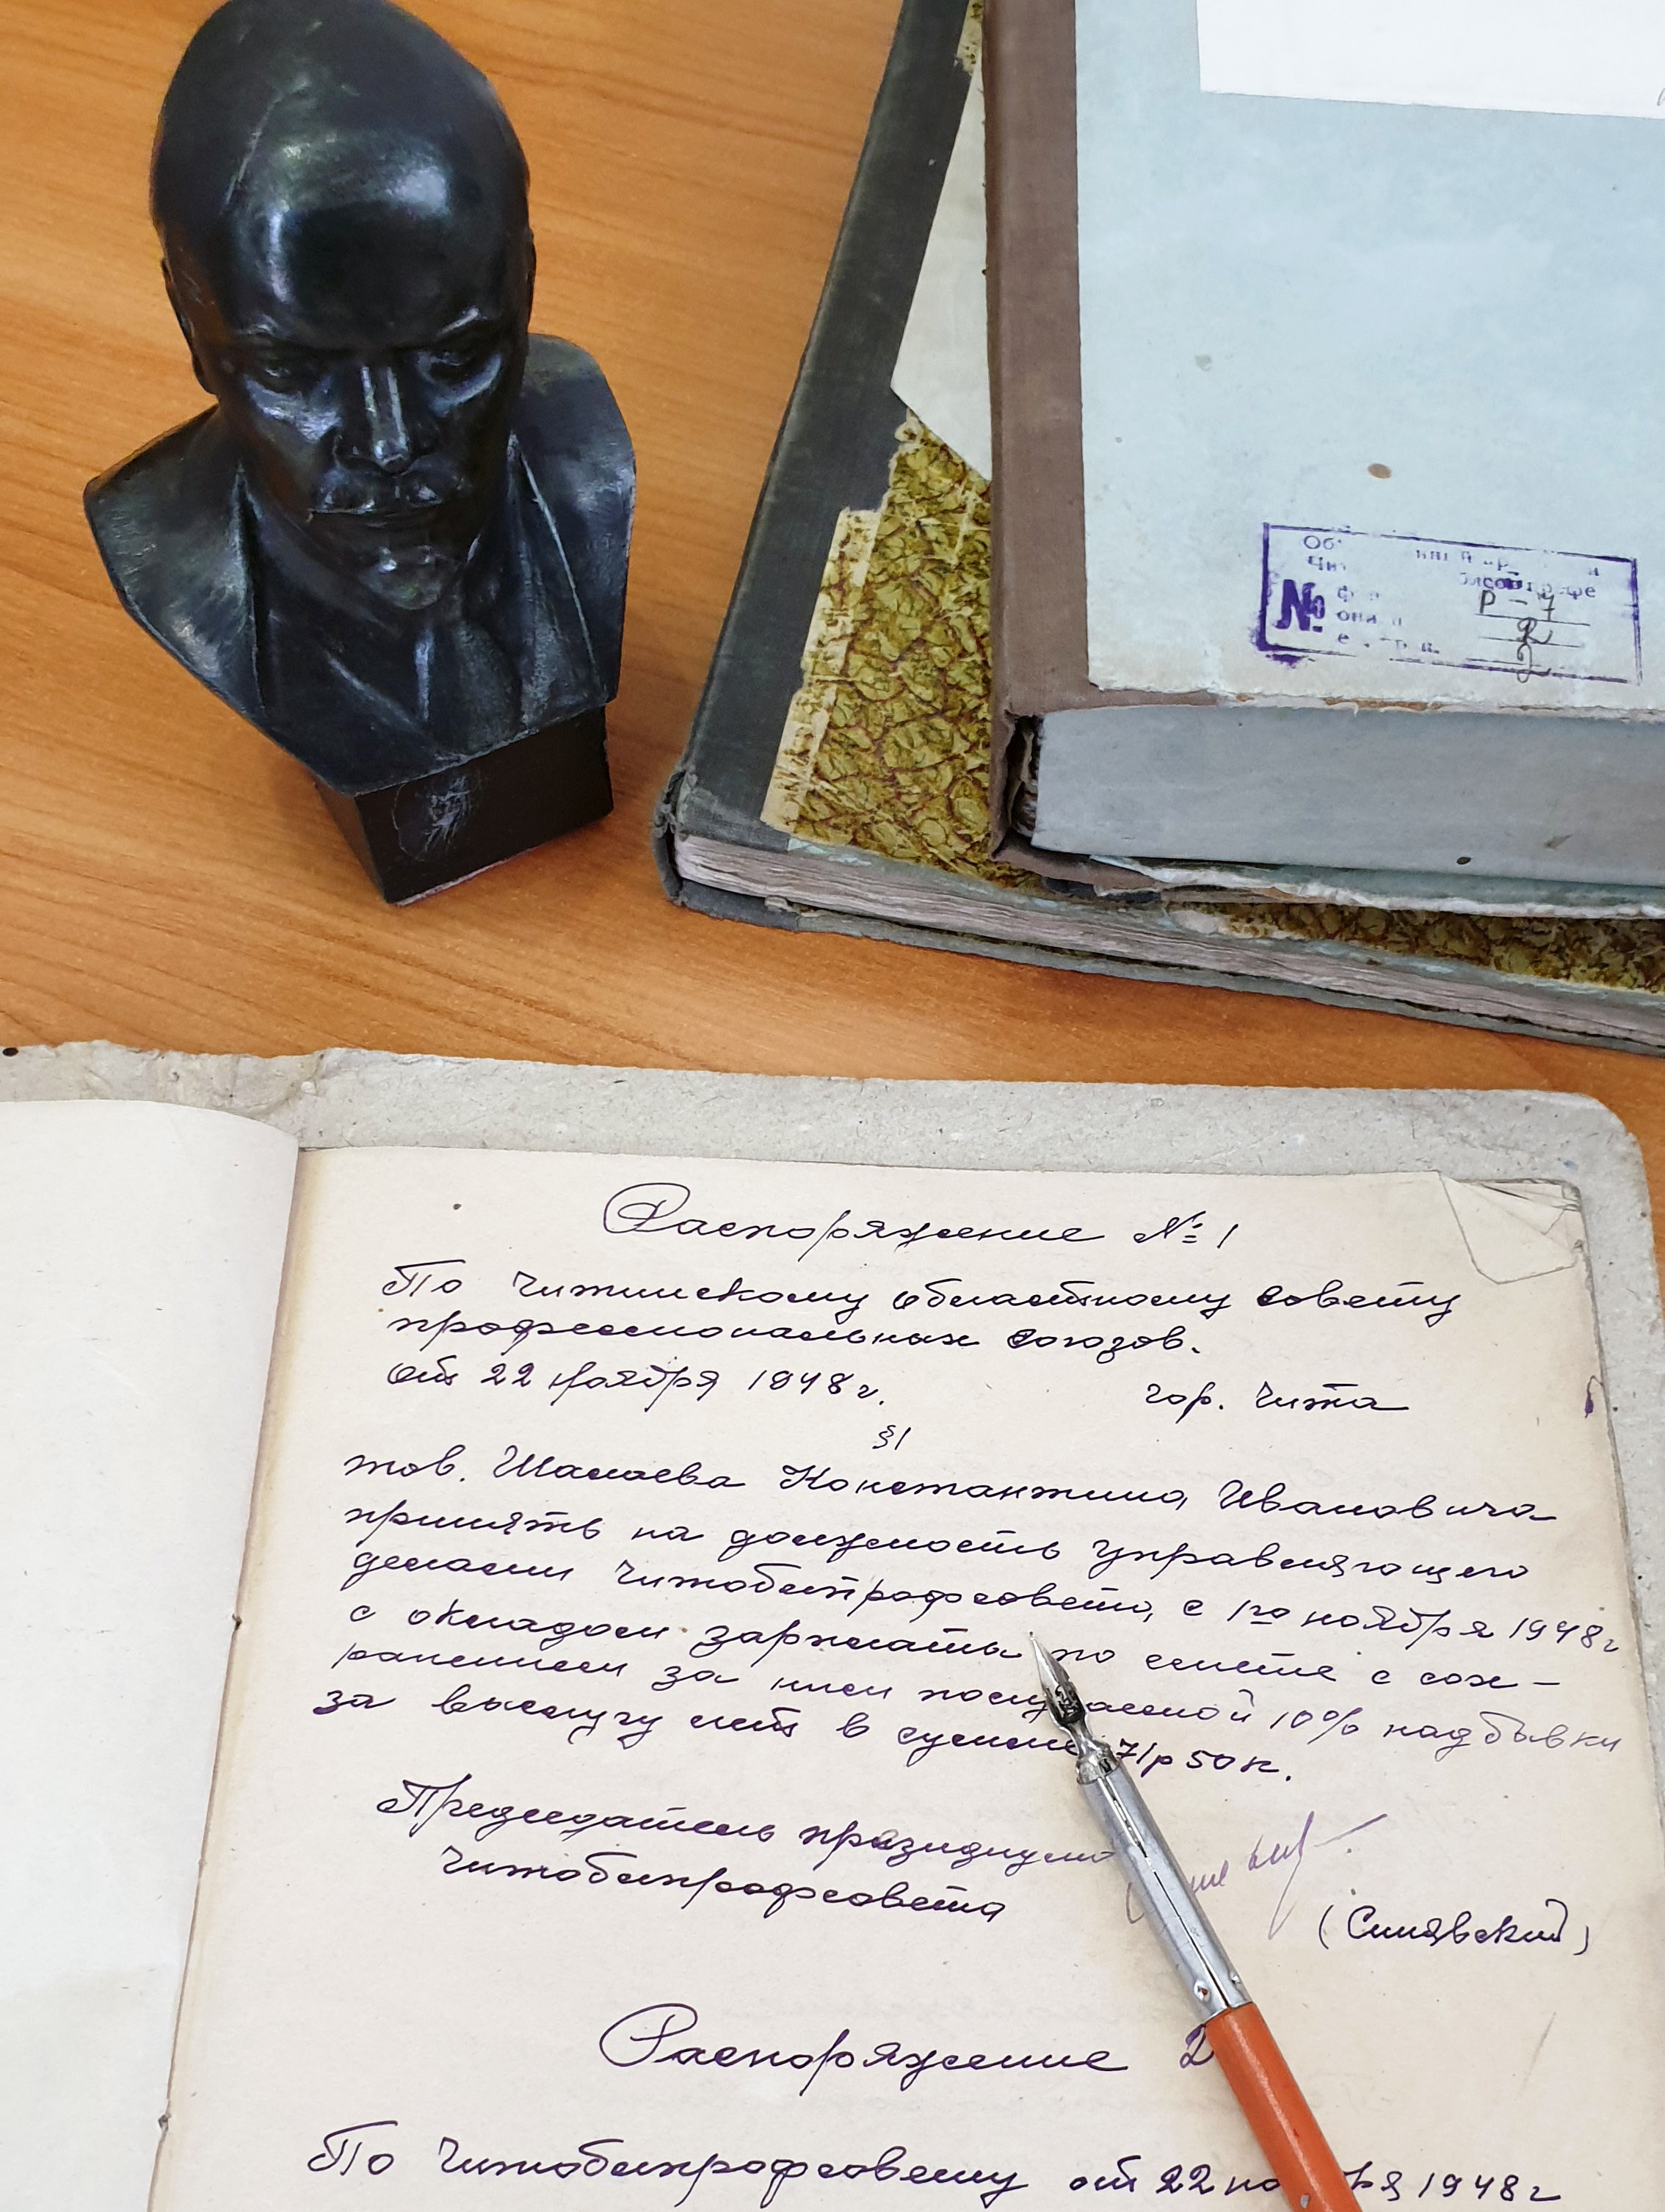 №
Р-7
2
2
Распоряжение № 1
По Читинскому областному совету
профессиональных союзов.
от 22 ноября 1948 г.
гор. Чита
§1
тов. Шалаева Константина Ивановича
принять на должность управляющего
делами Читоблпрофсовета, с 1го ноября 1948 г
с окладом зарплаты по смете с сох-
ранением за ним 10% надбавки
за выслугу лет в сумме 71р 50к.
Председатель президиума
Читоблпрофсовета
(Синявский)
Распоряжение 2
По Читоблпрофсовету от 22 1948 г